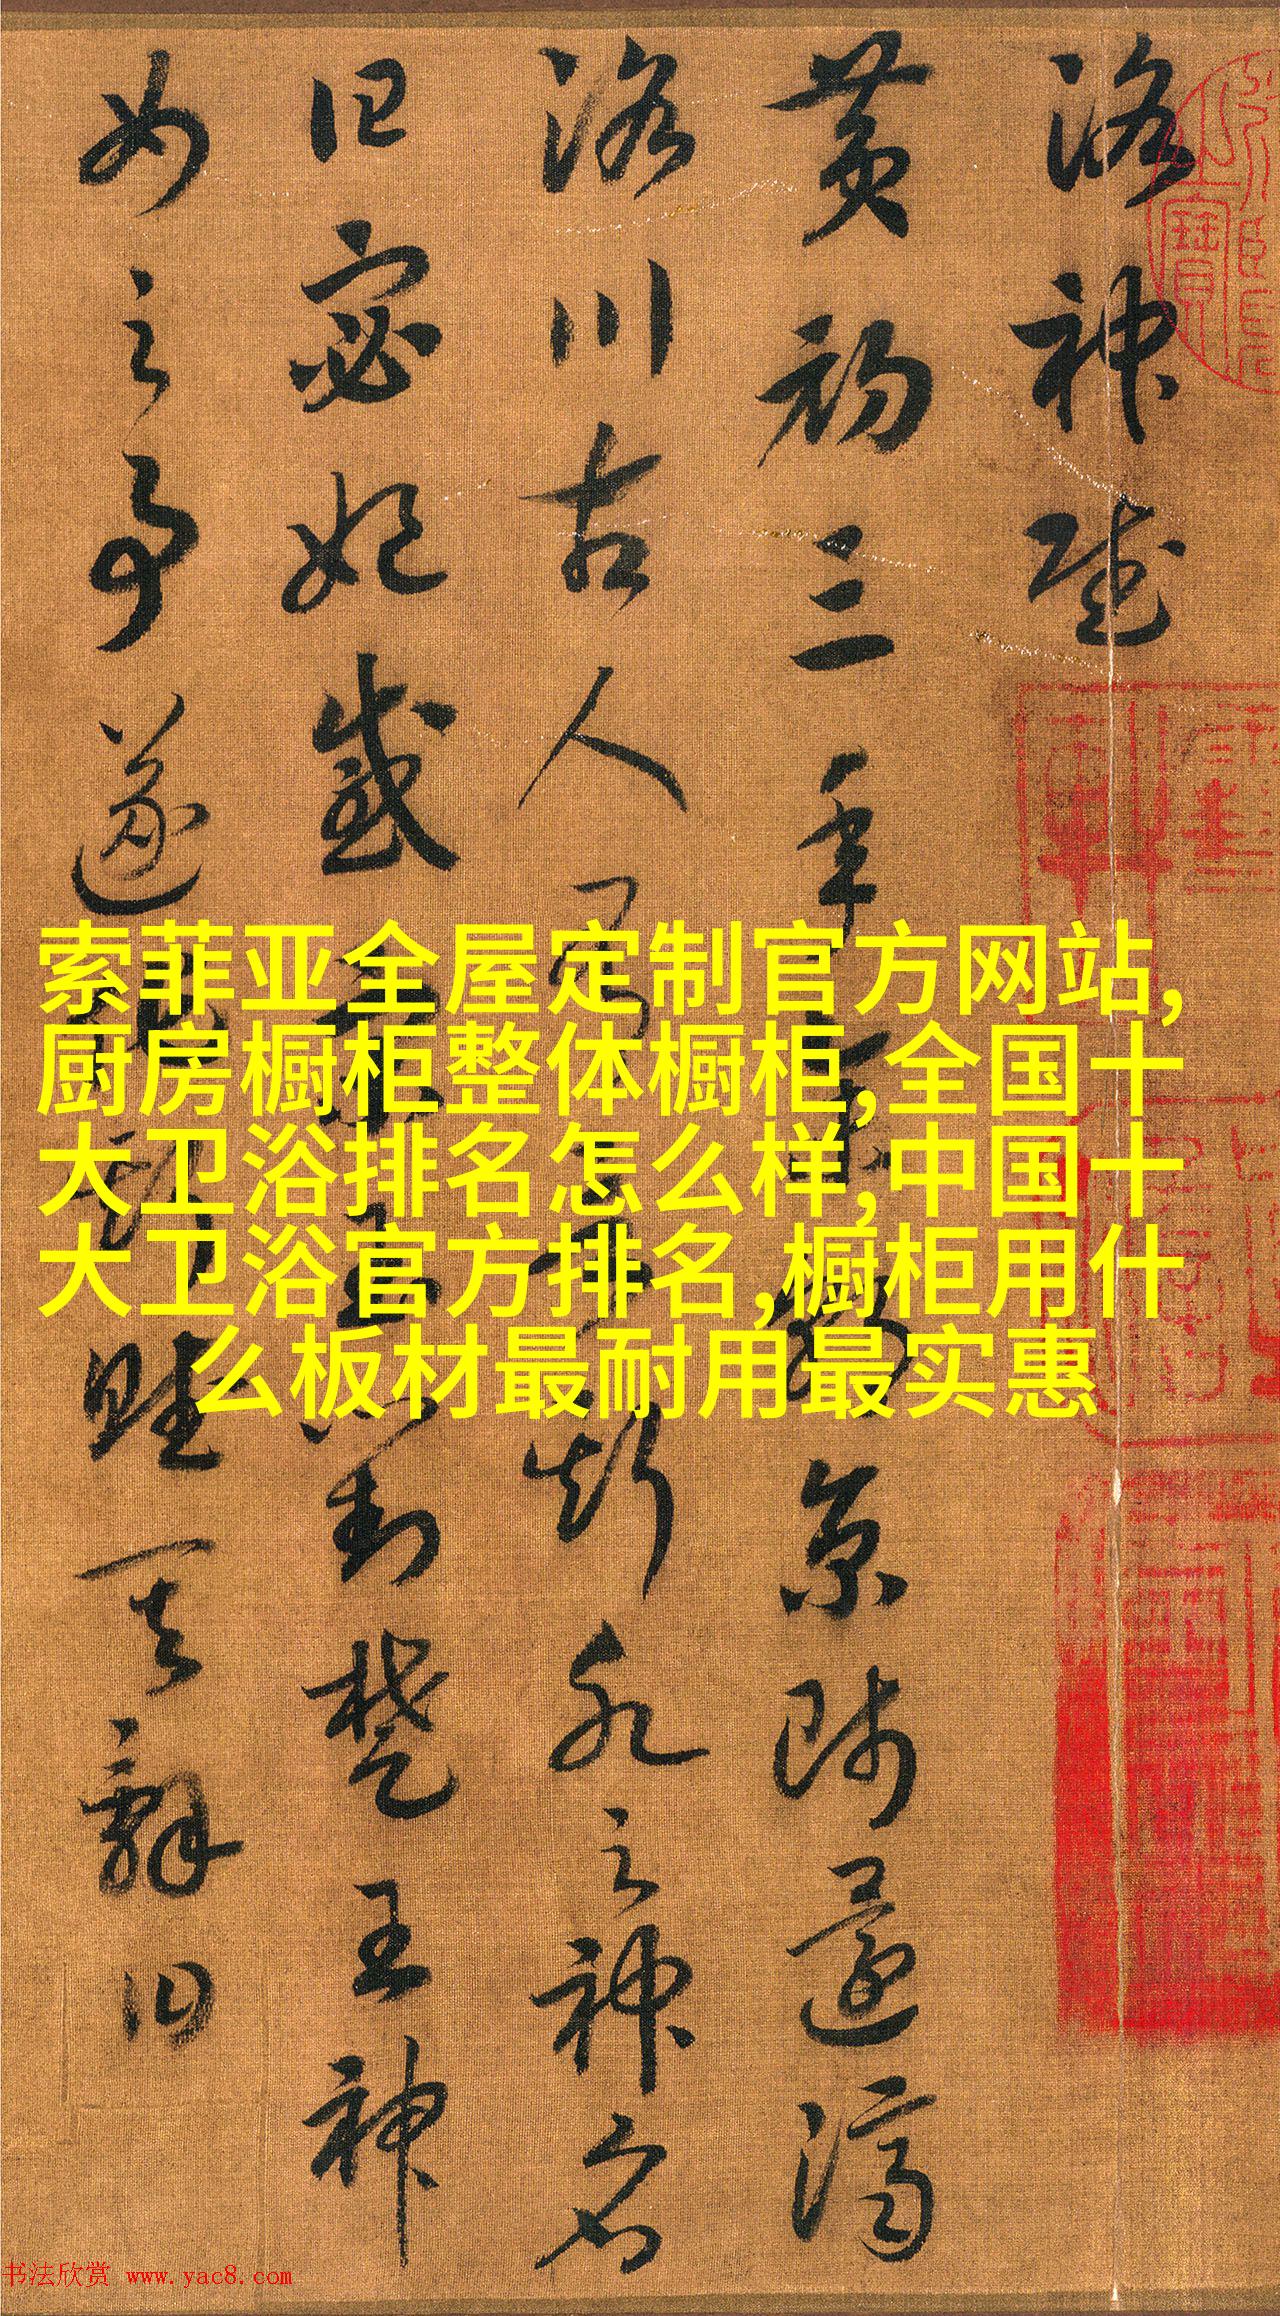 洛神賦
黄初三年余朝京師還濟
洛川古人有言斯水之神名
曰宓妃感宋玉對楚王神
女之事遂作斯賦其辭曰
索菲亚全屋定制官方网站,
厨房橱柜整体橱柜,全国十
大卫浴排名怎么样,中国十
大卫浴官方排名,橱柜用什
么板材最耐用最实惠
书法欣赏 www.yac8.com